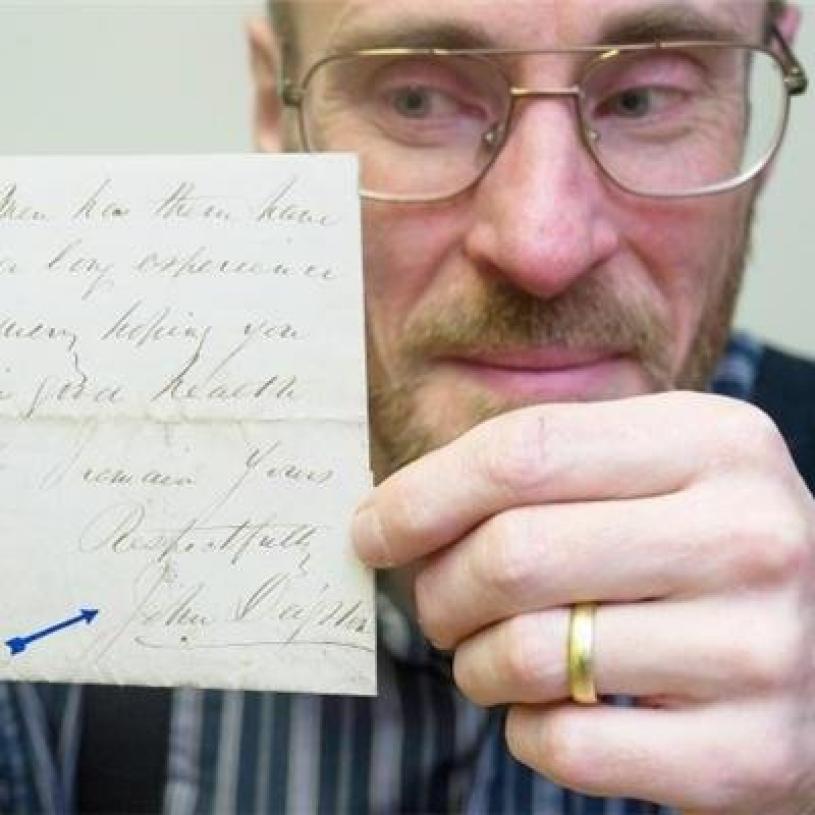 has them have
a long experience
hoping you
good health
remain Yours
Respectfully
John